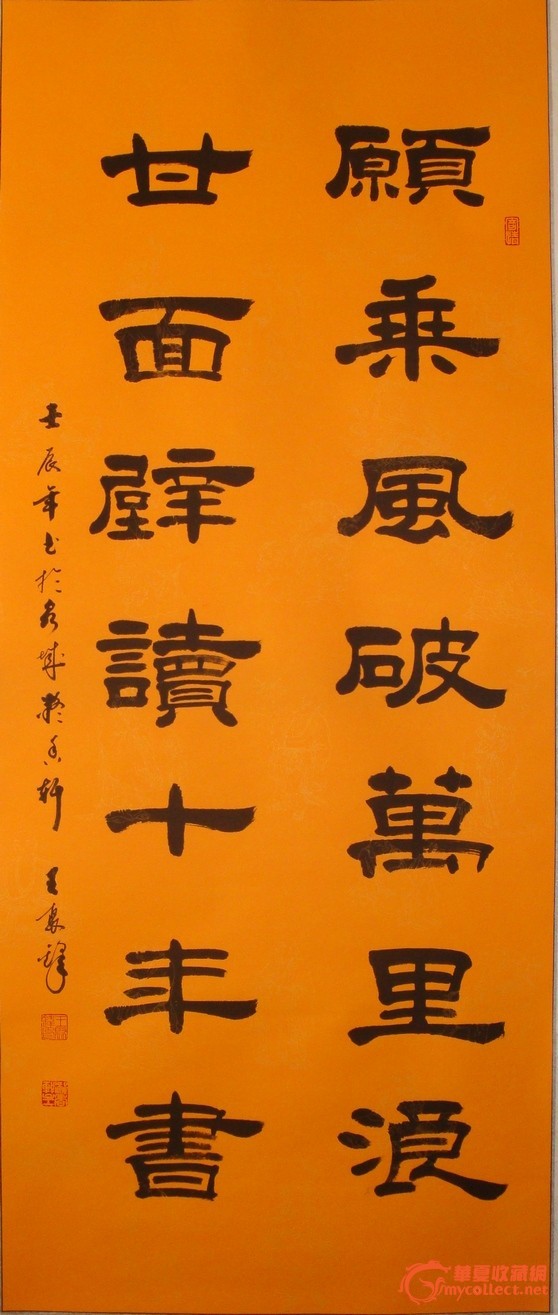 願乘風破萬里浪
甘面壁讀十年書
壬辰年书於泉城凝香軒 王
華夏收藏網
mycollect.net